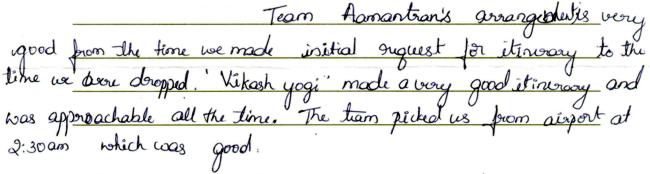 Team Aamantran's arrangements very
good from the time we made initial request for itinerary to the
time we were dropped. "Vikash yogi" made a very good itinerary and
was approachable all the time. The team picked us from airport at
2:30am which was good.